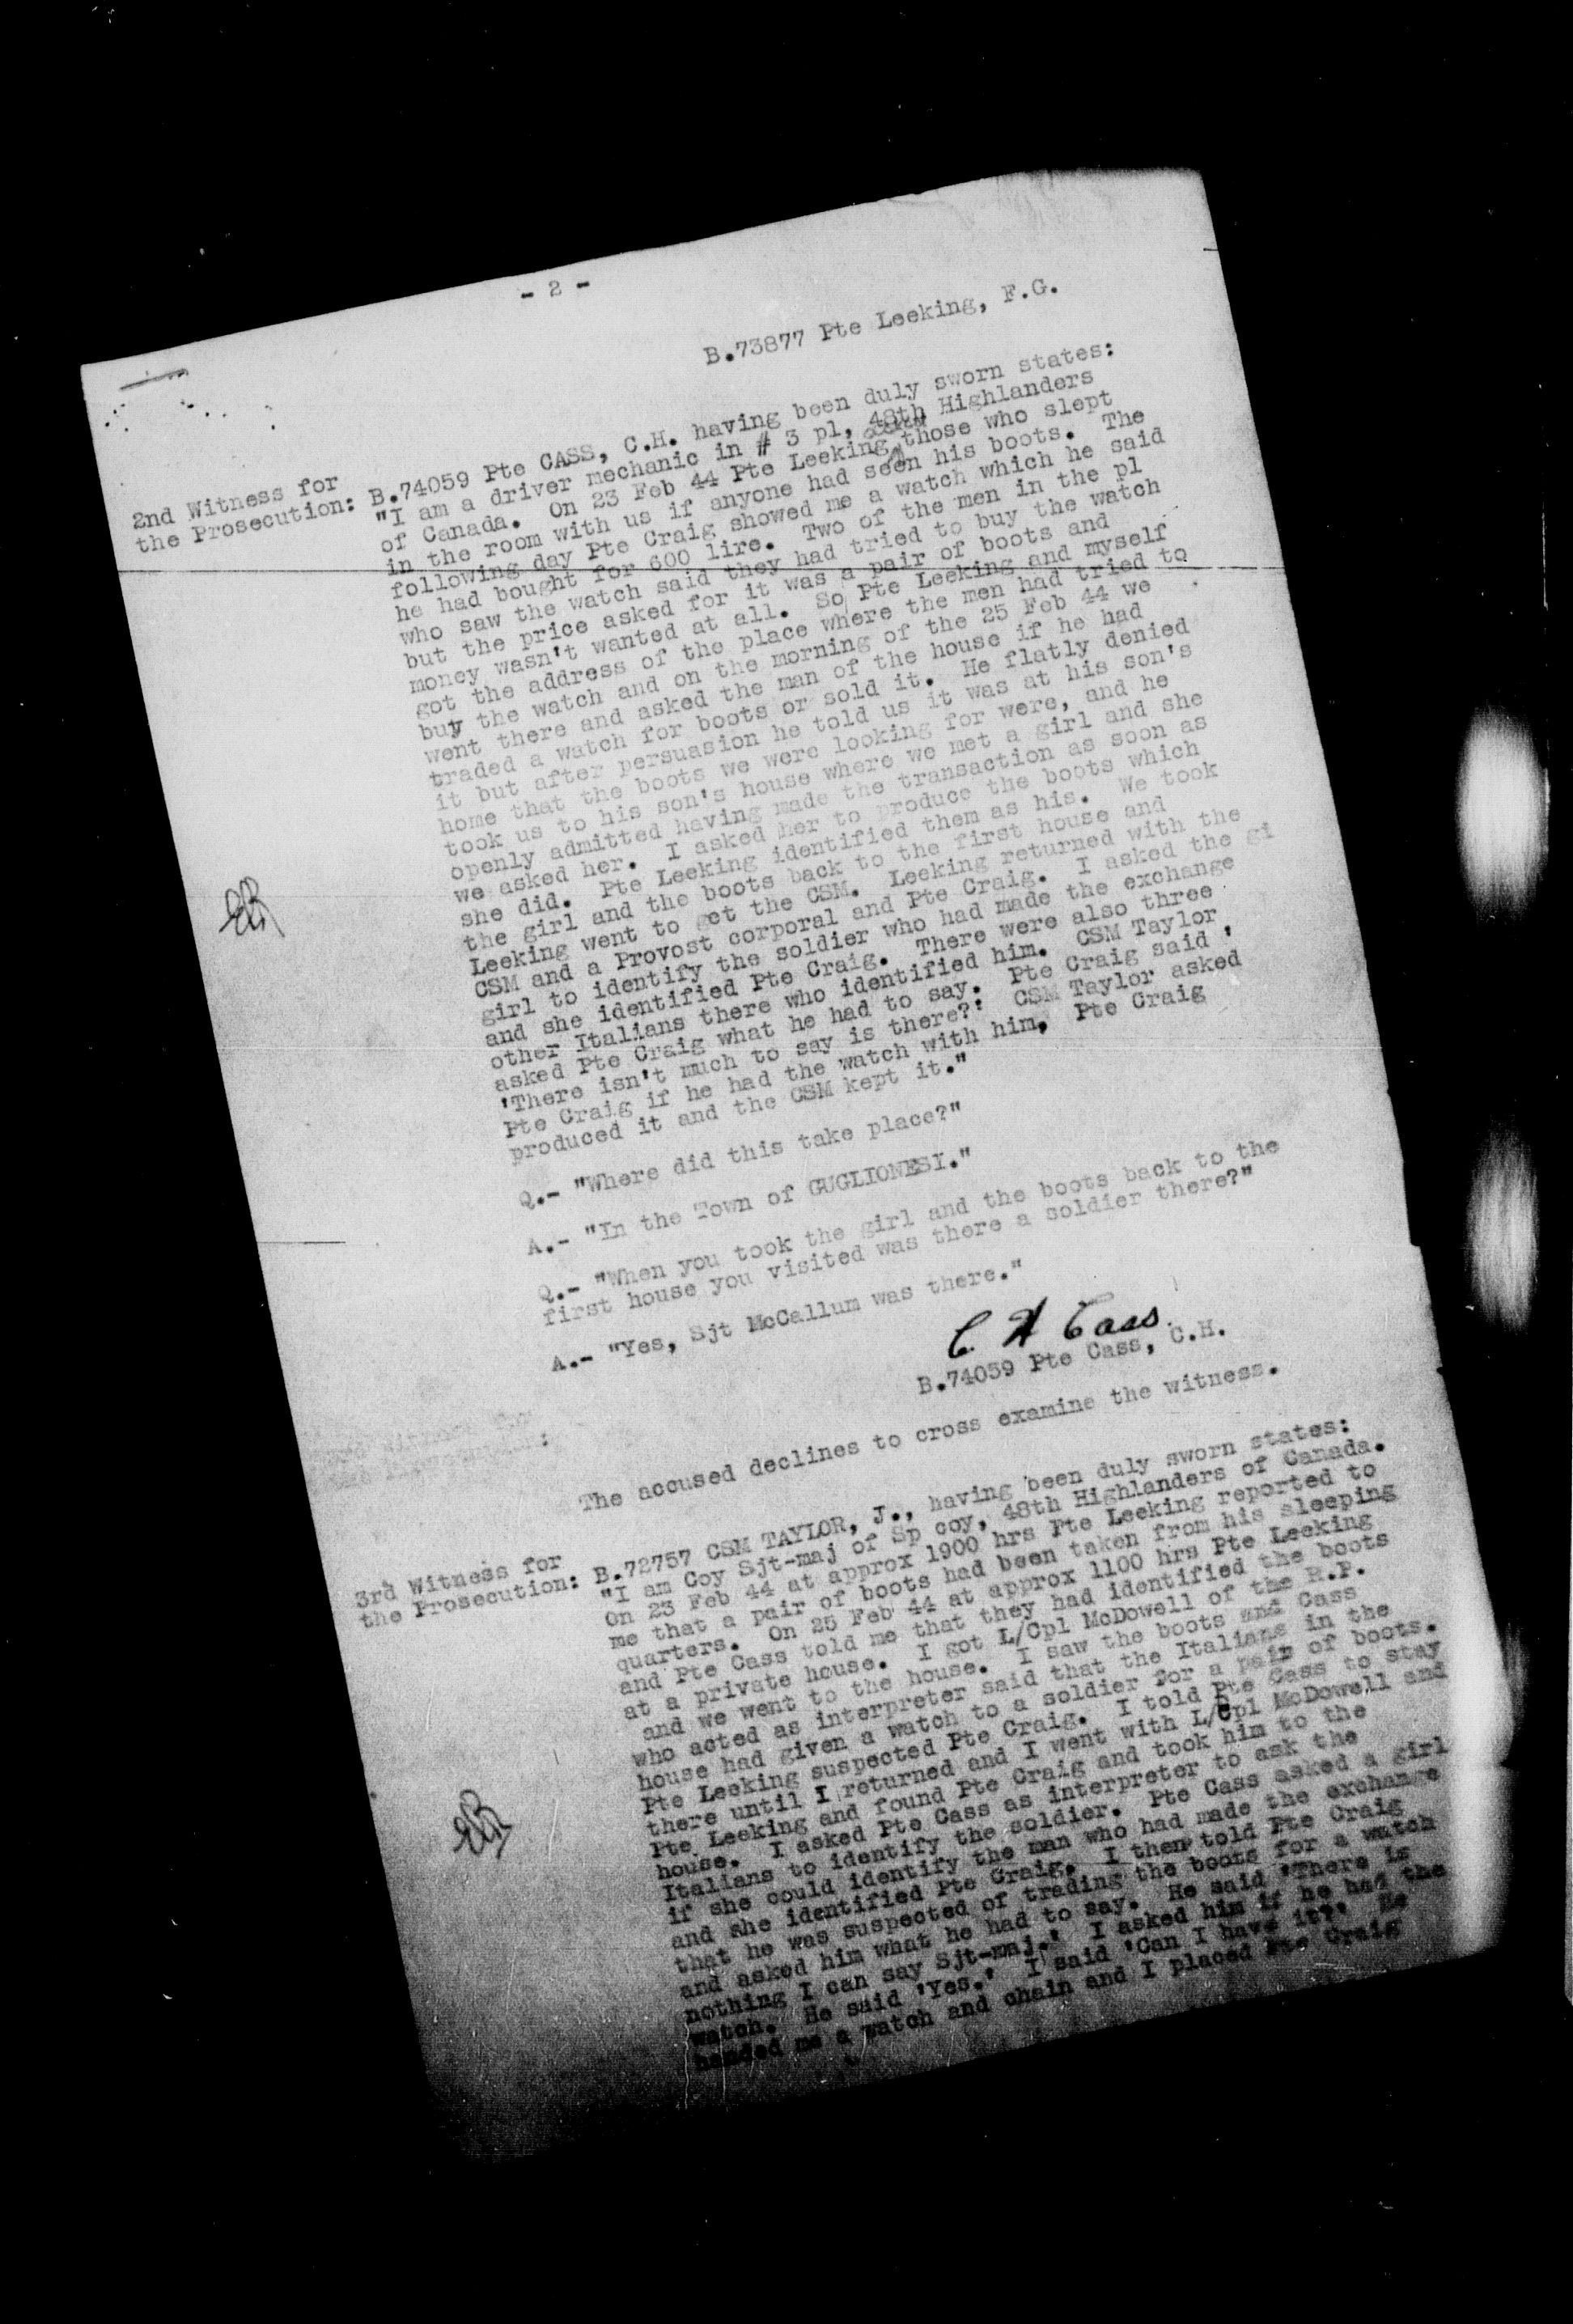 - 2 -
B.73877 Pte Leeking, F.G.
2nd Witness for
the Prosecution:
B.74059 Pte CASS, C.H. having been duly sworn states:
"I am a driver mechanic in # 3 pl, 48th Highlanders
of Canada. On 23 Feb 44 Pte Leeking those who slept
in the room with us if anyone had seen his boots. The
following day Pte Craig showed me a watch which he said
he had bought for 600 lire. Two of the men in the pl
who saw the watch said they had tried to buy the watch
but the price asked for it was a pair of boots and
money wasn't wanted at all. So Pte Leeking and myself
got the address of the place where the men had tried to
buy the watch and on the morning of the 25 Feb 44 we
went there and asked the man of the house if he had
traded a watch for boots or sold it. He flatly denied
it but after persuasion he told us it was at his son's
home that the boots we were looking for were, and he
took us to his son's house where we met a girl and she
openly admitted having made the transaction as soon as
we asked her. I asked her to produce the boots which
she did. Pte Leeking identified them as his. We took
the girl and the boots back to the first house and
Leeking went to get the CSM. Leeking returned with the
CSM and a Provost corporal and Pte Craig. I asked the gi
girl to identify the soldier who had made the exchange
and she identified Pte Craig. There were also three
other Italians there who identified him. CSM Taylor
asked Pte Craig what he had to say. Pte Craig said '
'There isn't much to say is there?' CSM Taylor asked
Pte Craig if he had the watch with him, Pte Craig
produced it and the CSM kept it."
Q.- "Where did this take place?"
A.- "In the Town of GUGLIONESI."
Q.- "When you took the girl and the boots back to the
first house you visited was there a soldier there?"
A.- "Yes, Sjt McCallum was there."
C H Cass
B.74059 Pte Cass, C.H.
The accused declines to cross examine the witness.
3rd Witness for
the Prosecution:
B.72757 CSM TAYLOR, J., having been duly sworn states:
"I am Coy Sjt-maj of Sp coy, 48th Highlanders of Canada.
On 23 Feb 44 at approx 1900 hrs Pte Leeking reported to
me that a pair of boots had been taken from his sleeping
quarters. On 25 Feb 44 at approx 1100 hrs Pte Leeking
and Pte Cass told me that they had identified the boots
at a private house. I got L/Cpl McDowell of the R.P.
and we went to the house. I saw the boots and Cass
who acted as interpreter said that the Italians in the
house had given a watch to a soldier for a pair of boots.
Pte Leeking suspected Pte Craig. I told Pte Cass to stay
there until I returned and I went with L/Cpl McDowell and
Pte Leeking and found Pte Craig and took him to the
house. I asked Pte Cass as interpreter to ask the
Italians to identify the soldier. Pte Cass asked a girl
if she could identify the man who had made the exchange
and she identified Pte Craig. I then told Pte Craig
that he was suspected of trading the boots for a watch
and asked him what he had to say. He said 'There is
nothing I can say Sjt-maj.' I asked him if he had the
watch. He said 'Yes.' I said 'Can I have it?' He
handed me a watch and chain and I placed Pte Craig